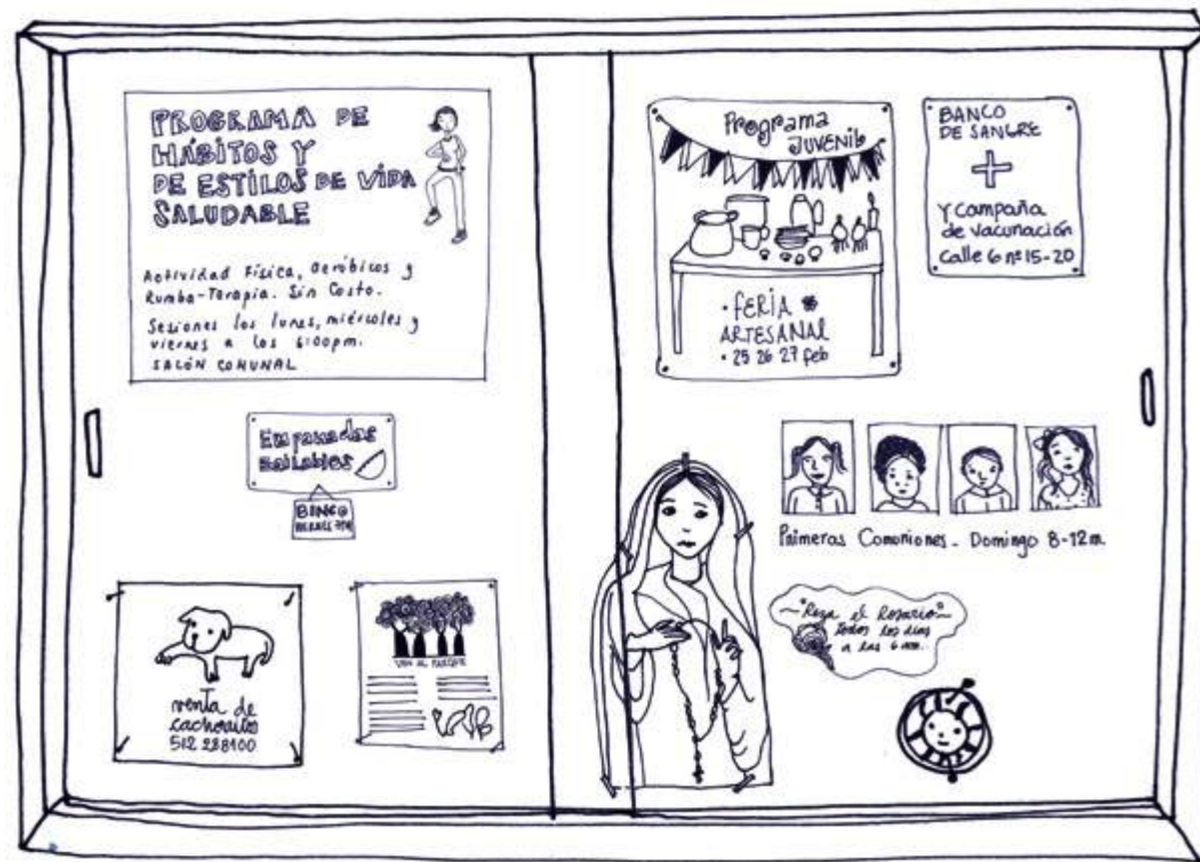 PROGRAMA DE
HÁBITOS Y
DE ESTILOS DE VIDA
SALUDABLE
Actividad Física, Aeróbicos y
Rumba-Terapia. Sin Costo.
Sesiones los lunes, miércoles y
viernes a las 6:00pm.
SALÓN COMUNAL
Empanadas
Bailables
BINGO
venta de
cachorritos
512 288100
VEN AL PARQUE
Programa
JUVENIL
• FERIA
ARTESANAL
• 25 26 27 feb
BANCO
DE SANGRE
Y campaña
de vacunación
calle 6 nº 15-20
Primeras Comuniones - Domingo 8-12m.
"Reza el Rosario"
todos los días
a las 6 am.